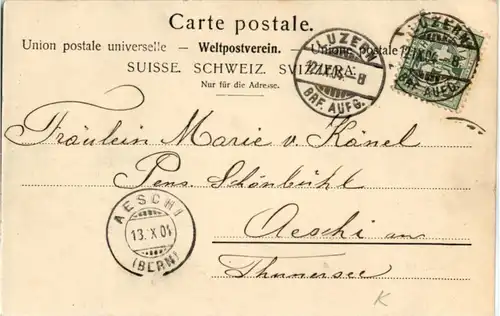 Carte postale.
Union postale universelle — Weltpostverein. — Unione postale
SUISSE. SCHWEIZ. SVIZZERA.
Nur für die Adresse.
LUZERN
12.X.04. - 8
BRF. AUFG.
LUZERN
12.X.04. - 8
BRF. AUFG.
Fräulein Marie v. Känel
Pens. Schönbühl
Aeschi am
Thunersee
AESCHI
13.X.04
(BERN)
K